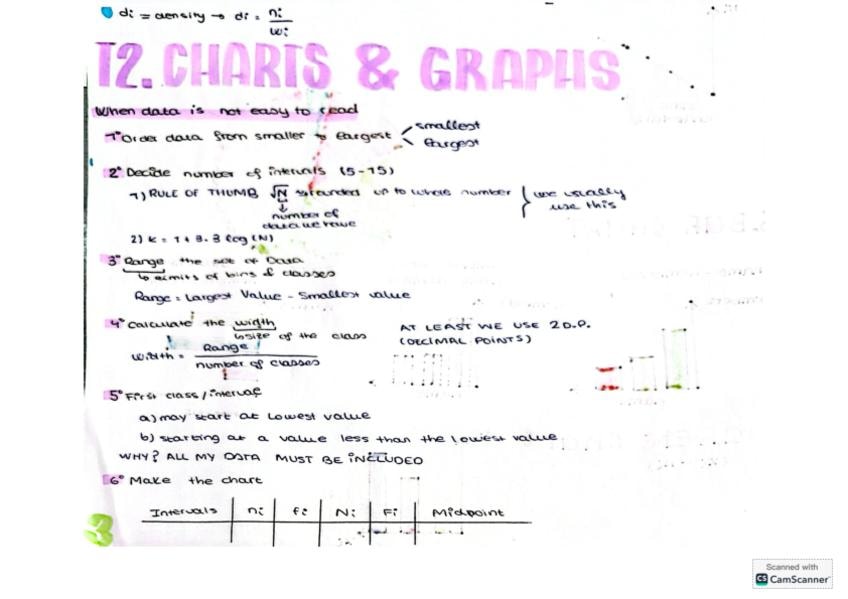 di = density → di = ni / wi
T2. CHARTS & GRAPHS
When data is not easy to read
1° Order data from smaller → largest < smallest
largest
2° Decide number of intervals (5-15)
1) RULE OF THUMB √N rounded up to whole number } we usually use this
↓
number of
data we have
2) k = 1 + 3.3 log (N)
3° Range the set of Data
↳ limits of bins of classes
Range = Largest Value - Smallest value
4° Calculate the width
↳ size of the class
AT LEAST WE USE 2 D.P.
(DECIMAL POINTS)
Width = Range / number of classes
5° First class / interval
a) may start at lowest value
b) starting at a value less than the lowest value
WHY? ALL MY DATA MUST BE INCLUDED
6° Make the chart
Intervals | ni | fi | Ni | Fi | Midpoint
3
Scanned with
CS CamScanner